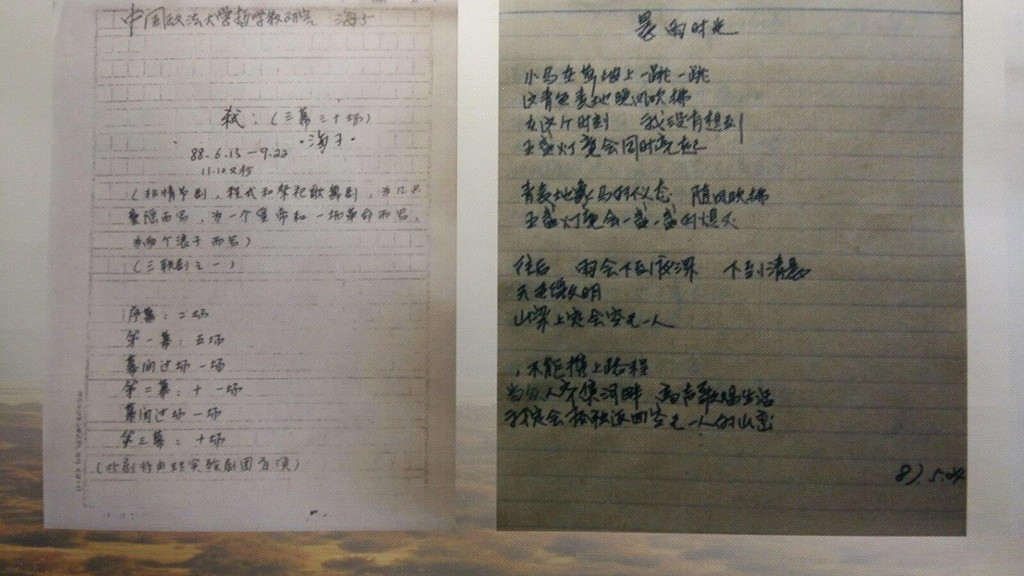 中国政法大学哲学教研室 海子
弑：（三幕三十场）
·海子·
88.6.13-9.22
（非情节剧，程式和祭祀歌舞剧，为几只
童谣而写，为一个皇帝和一场革命而写，
为两个浪子而写）
（三联剧之一）
序幕：二场
第一幕：五场
幕间过场一场
第二幕：十一场
幕间过场一场
第三幕：十场
晨雨时光
小马在草坡上一跳一跳
这青色麦地晚风吹拂
在这个时刻 我没有想到
五盏灯竟会同时亮起
青麦地像马的仪态 随风吹拂
五盏灯竟会一盏一盏的熄灭
往后 雨会下到夜深 下到清晨
天色微明
山梁上定会空无一人
不能携上路程
当众人齐集河畔 高声歌唱生活
我定会孤独返回空无一人的山峦